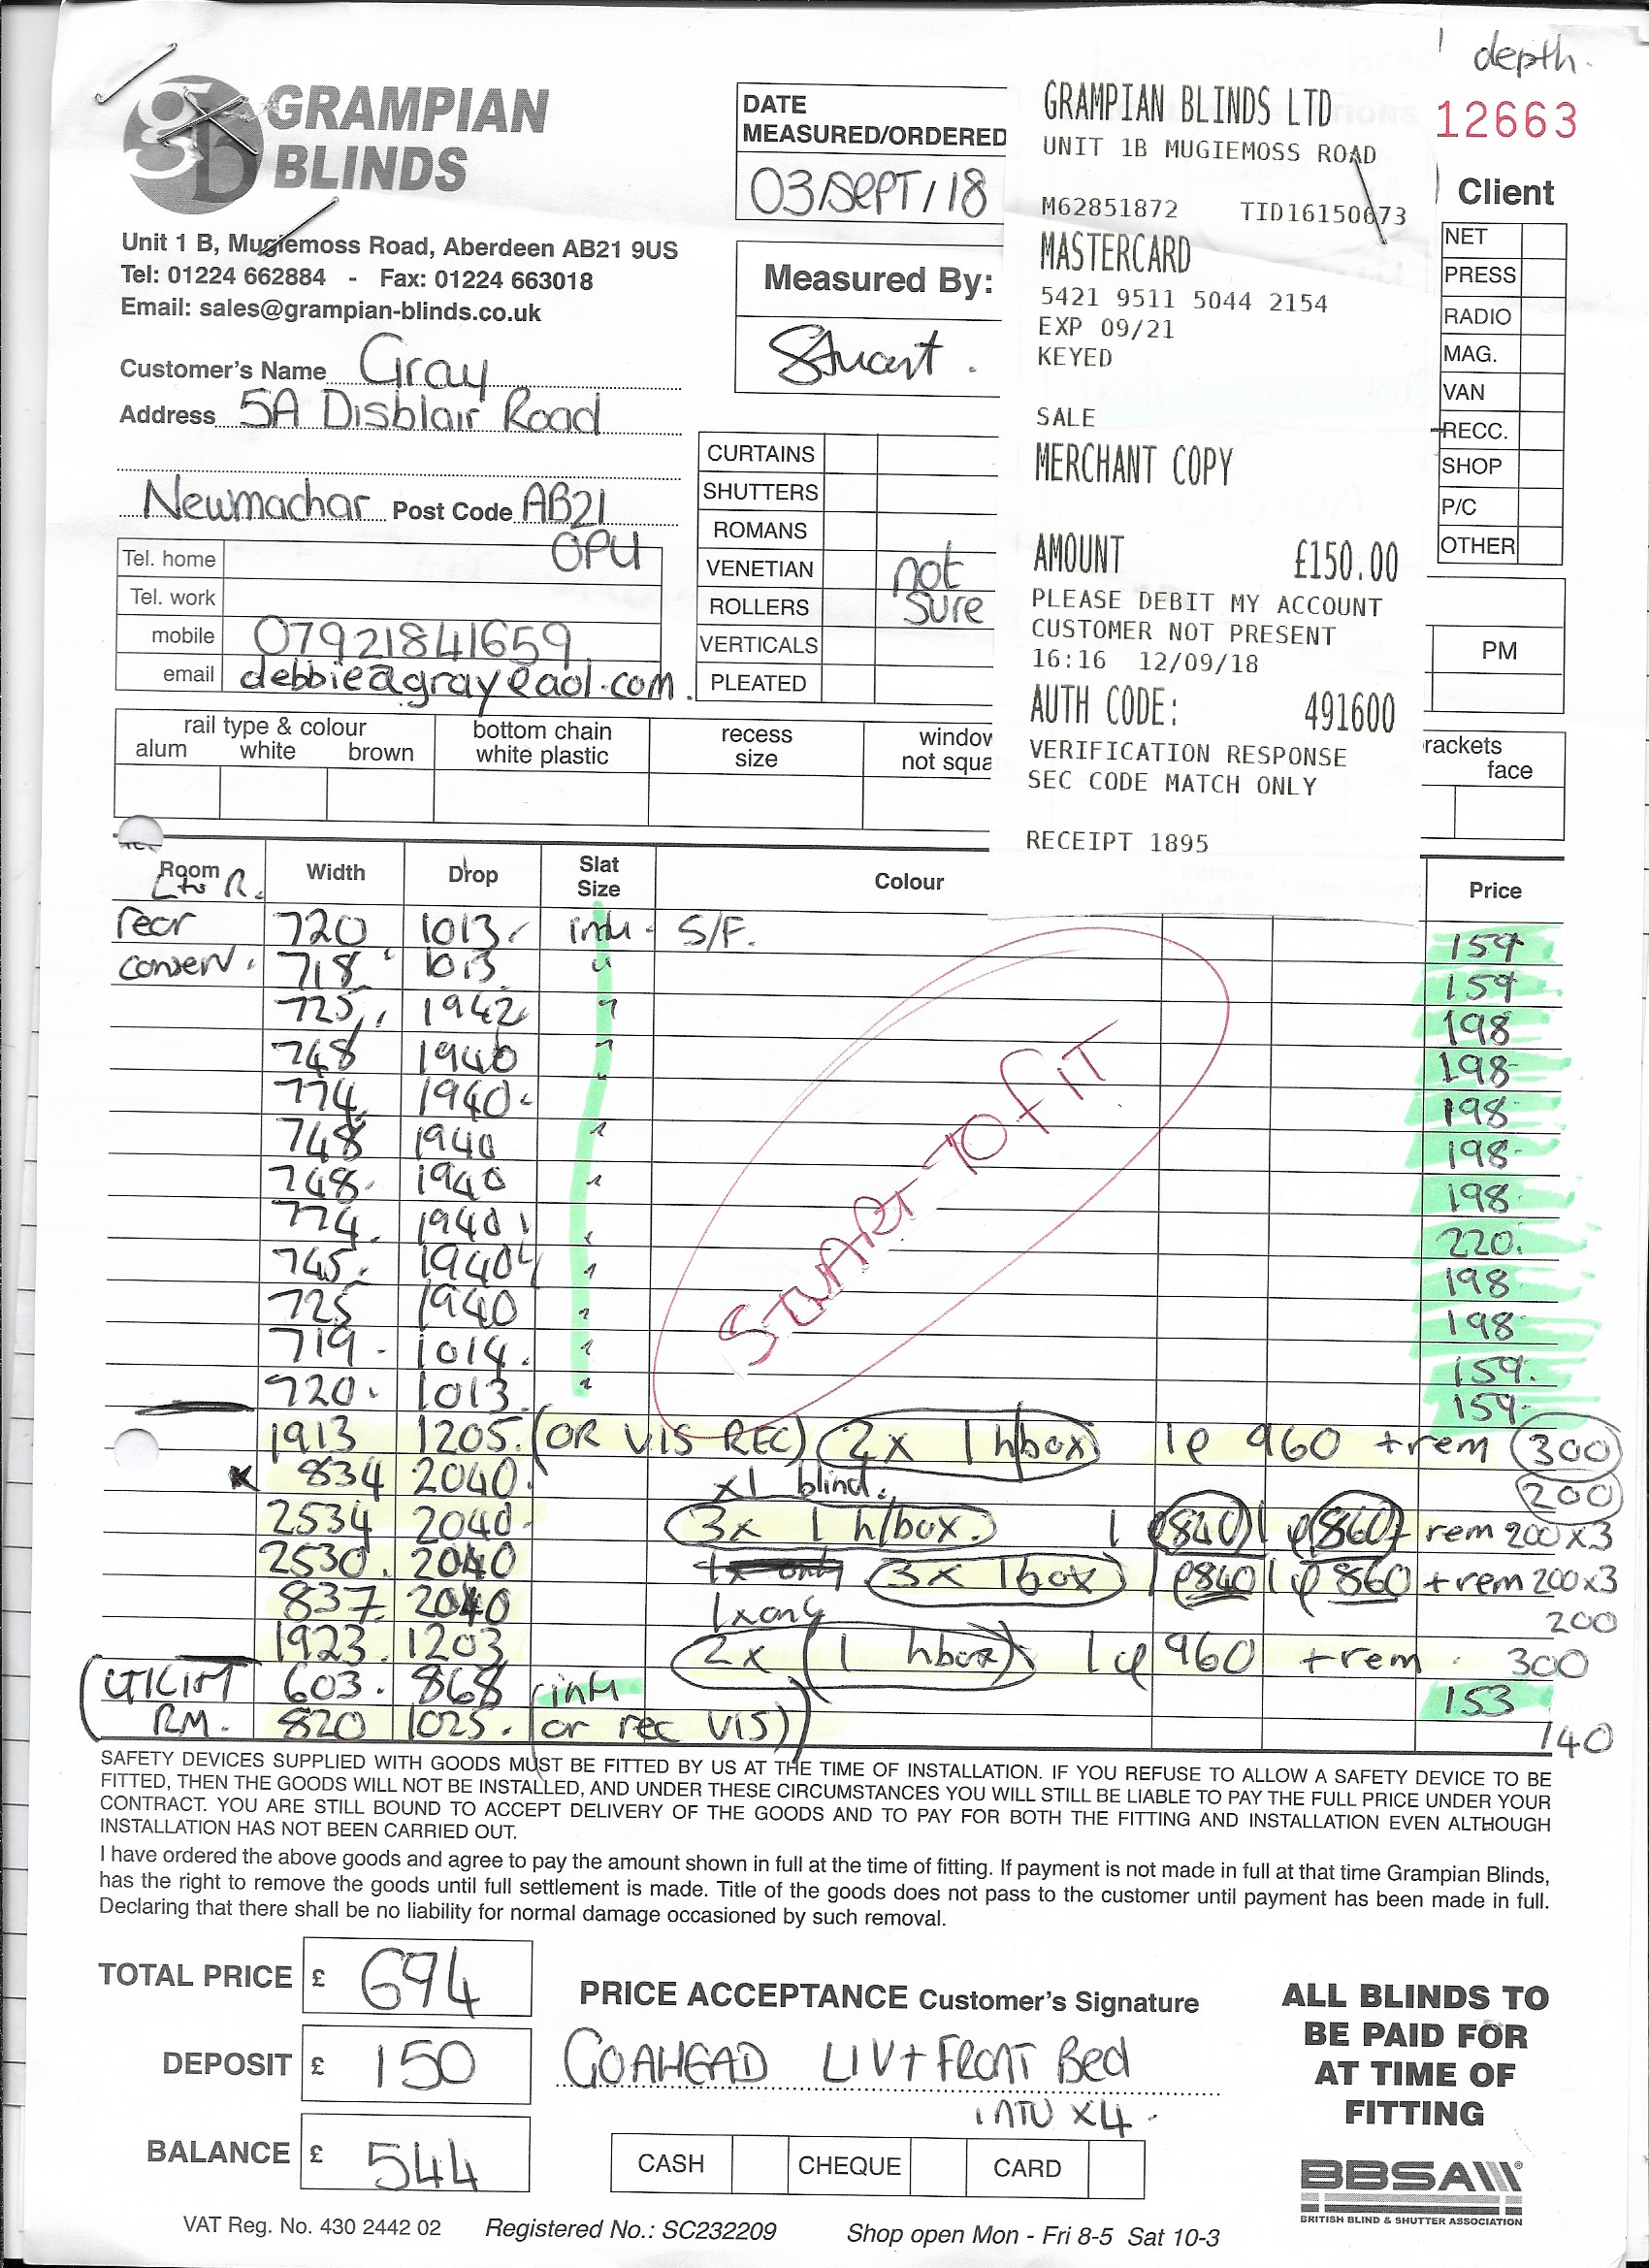 depth.
GRAMPIAN
BLINDS
Unit 1 B, Mugiemoss Road, Aberdeen AB21 9US
Tel: 01224 662884 - Fax: 01224 663018
Email: sales@grampian-blinds.co.uk
DATE
MEASURED/ORDERED
03/SEPT/18
Measured By:
Stuart.
GRAMPIAN BLINDS LTD
UNIT 1B MUGIEMOSS ROAD
M62851872 TID16150673
MASTERCARD
5421 9511 5044 2154
EXP 09/21
KEYED
SALE
MERCHANT COPY
AMOUNT £150.00
PLEASE DEBIT MY ACCOUNT
CUSTOMER NOT PRESENT
16:16 12/09/18
AUTH CODE: 491600
VERIFICATION RESPONSE
SEC CODE MATCH ONLY
RECEIPT 1895
12663
Client
NET
PRESS
RADIO
MAG.
VAN
RECC.
SHOP
P/C
OTHER
PM
Customer's Name Gray
Address 5A Disblair Road
Newmachar Post Code AB21
0PU
Tel. home
Tel. work
mobile 07921841659
email debbieagray@aol.com
CURTAINS
SHUTTERS
ROMANS
VENETIAN not
ROLLERS sure
VERTICALS
PLEATED
rail type & colour
alum white brown
bottom chain
white plastic
recess
size
window
not squa
rackets
face
Room Width Drop Slat Size Colour Price
L to R.
rear 720 1013 intu S/F. 159
conserv. 718 1013 " 159
725 1942 " 198
748 1940 " 198
774 1940 " 198
748 1940 " 198
748 1940 " 198
774 1940 " 220.
745 1940 " 198
725 1940 " 198
719 1014. " 159.
720 1013 " 159
STUART TO FIT
1913 1205. (OR VIS REC) 2x 1 hbox 1@ 960 + rem 300
x 834 2040. x1 blind. 200
2534 2040 3x 1 h/box. 1@840 1@860 + rem 200x3
2530. 2040 3x 1box 1@840 1@860 + rem 200x3
837 2040 1x only 200
1923 1203 2x (1 hbox) 1@960 + rem. 300
UTILITY 603. 868 intu 153
RM. 820 1025. (or rec VIS) 140
SAFETY DEVICES SUPPLIED WITH GOODS MUST BE FITTED BY US AT THE TIME OF INSTALLATION. IF YOU REFUSE TO ALLOW A SAFETY DEVICE TO BE
FITTED, THEN THE GOODS WILL NOT BE INSTALLED, AND UNDER THESE CIRCUMSTANCES YOU WILL STILL BE LIABLE TO PAY THE FULL PRICE UNDER YOUR
CONTRACT. YOU ARE STILL BOUND TO ACCEPT DELIVERY OF THE GOODS AND TO PAY FOR BOTH THE FITTING AND INSTALLATION EVEN ALTHOUGH
INSTALLATION HAS NOT BEEN CARRIED OUT.
I have ordered the above goods and agree to pay the amount shown in full at the time of fitting. If payment is not made in full at that time Grampian Blinds,
has the right to remove the goods until full settlement is made. Title of the goods does not pass to the customer until payment has been made in full.
Declaring that there shall be no liability for normal damage occasioned by such removal.
TOTAL PRICE £ 694
DEPOSIT £ 150
BALANCE £ 544
PRICE ACCEPTANCE Customer's Signature
GOAHEAD LIV + FRONT Bed
INTU x4.
CASH CHEQUE CARD
ALL BLINDS TO
BE PAID FOR
AT TIME OF
FITTING
BBSA
BRITISH BLIND & SHUTTER ASSOCIATION
VAT Reg. No. 430 2442 02 Registered No.: SC232209 Shop open Mon - Fri 8-5 Sat 10-3